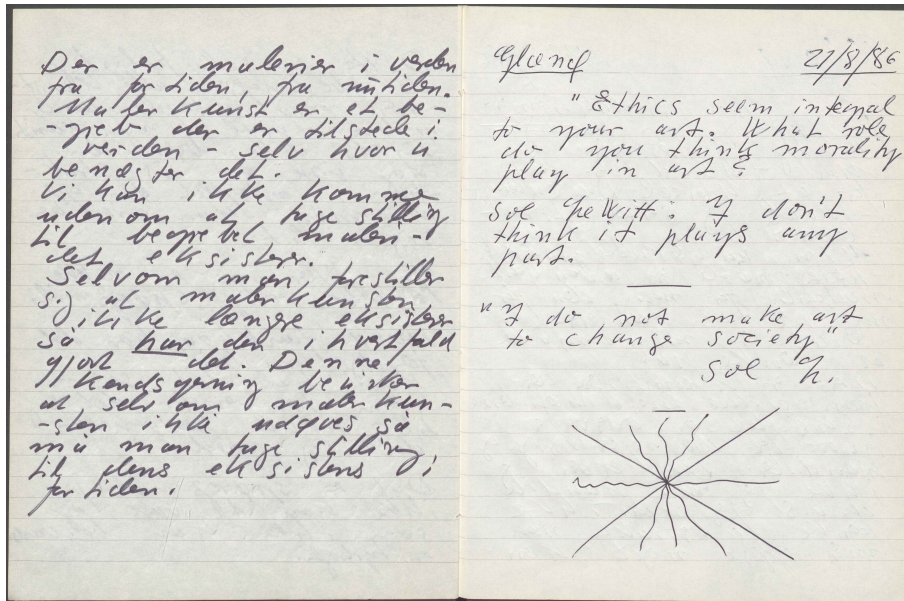 Der er malerier i verden
fra fortiden, fra nutiden.
Malerkunst er et be-
-greb der er tilstede i
verden - selv hvor vi
benægter det.
Vi kan ikke komme
udenom at tage stilling
til begrebet maleri-
det eksisterer.
Selvom man forestiller
sig at malerkunsten
ikke længere eksisterer
så har den ihvertfald
gjort det. Denne
Kendsgerning bevirker
at selv om malerkun-
-sten ikke udøves så
må man tage stilling
til dens eksistens i
fortiden.
21/8/86
"Ethics seem integral
to your art. What role
do you think morality
play in art?
Sol LeWitt: I don't
think it plays any
part.
"I do not make art
to change society"
Sol L.